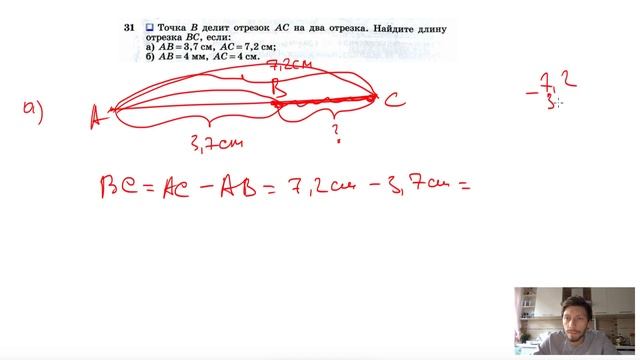 31 Точка B делит отрезок AC на два отрезка. Найдите длину
отрезка BC, если:
а) AB = 3,7 см, AC = 7,2 см;
б) AB = 4 мм, AC = 4 см.
7,2 см
а)
A
B
C
3,7 см
?
BC = AC − AB = 7,2 см − 3,7 см =
− 7,2
3,